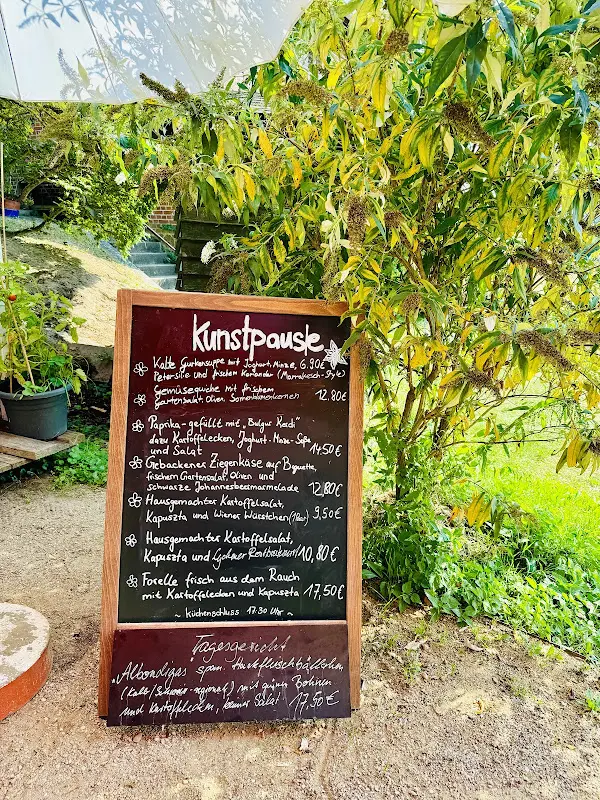 Kunstpause
Kalte Gurkensuppe mit Joghurt, Minze, 6.90€
Petersilie und frischem Koriander (Marrakesch-Style)
Gemüsequiche mit frischem
Gartensalat, Oliven, Sonnenblumenkernen 12.80€
Paprika-gefüllt mit "Bulgur
dazu Kartoffelecken, Joghurt-Minz-Soße
und Salat 14,50€
Gebackener Ziegenkäse auf Baguette,
frischem Gartensalat, Oliven und
schwarze Johannesbeermarmelade 12,80€
Hausgemachter Kartoffelsalat,
Kapuszta und Wiener Würstchen (1 Paar) 9,50€
Hausgemachter Kartoffelsalat,
Kapuszta und 10,80€
Forelle frisch aus dem Rauch
mit Kartoffelecken und Kapuszta 17,50€
~ Küchenschluss 17.30 Uhr ~
Tagesgericht
"Albondigas" span. Hackfleischbällchen
mit grünen Bohnen
und Kartoffelecken, kleiner Salat 17,50€